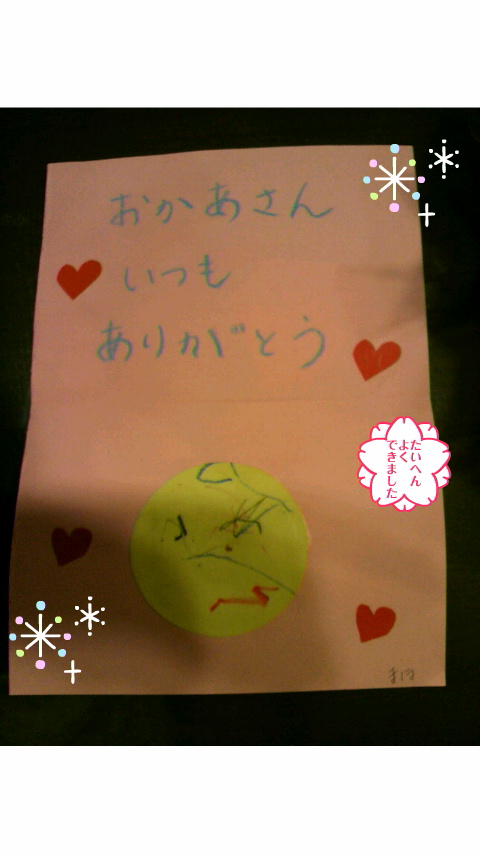 おかあさん
いつも
ありがとう
たいへん
よく
できました